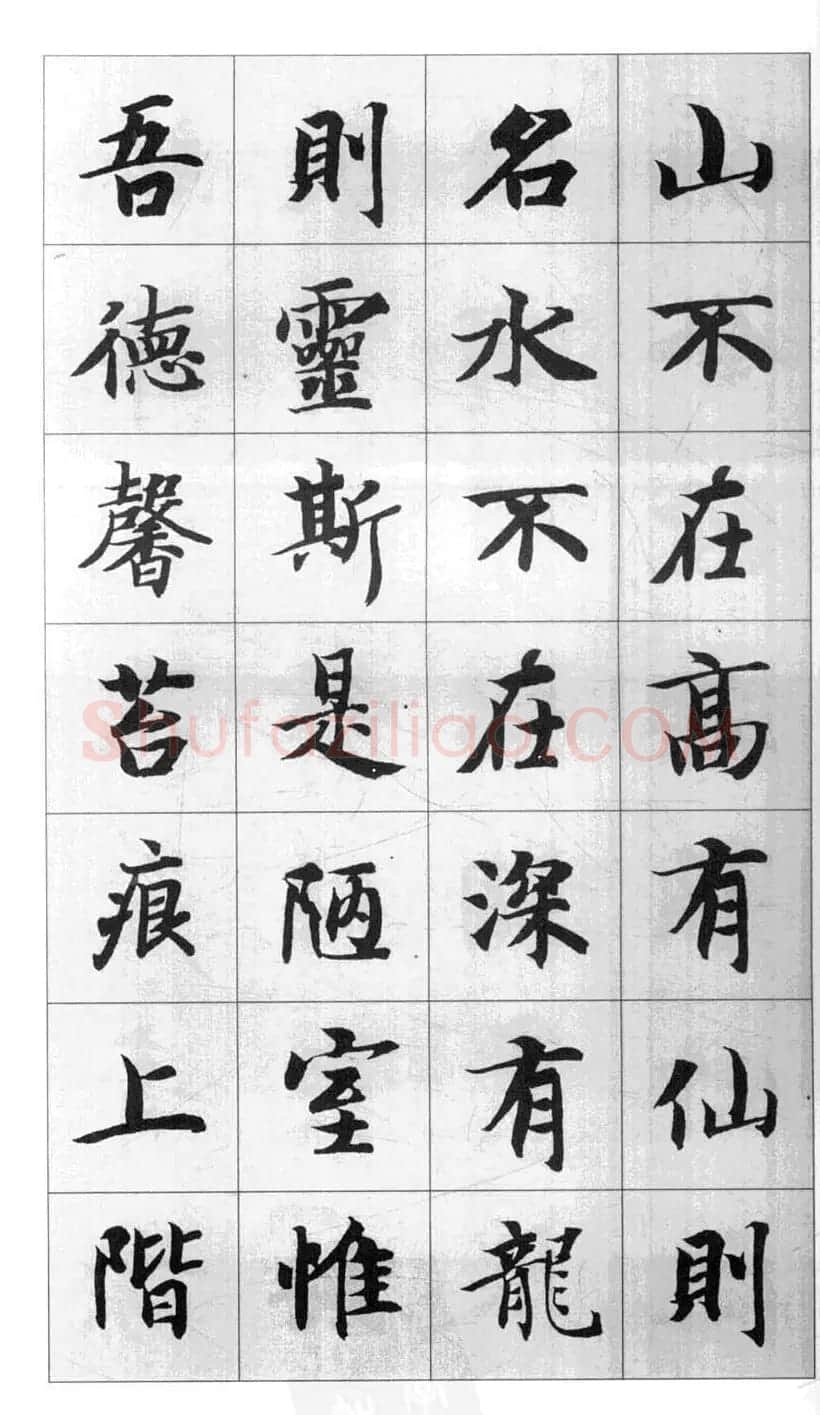 山不在高有仙則
名水不在深有龍
則靈斯是陋室惟
吾德馨苔痕上階
Shufaziliao.COM